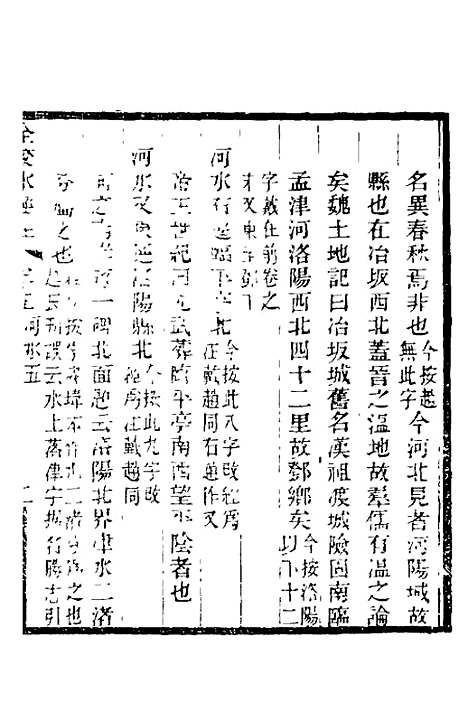 名異春秋焉非也今按趙無此字今河北見者河陽城故
縣也在冶坂西北蓋晉之溫地故羣儒有溫之論
矣魏土地記曰冶坂城舊名漢祖渡城險固南臨
孟津河洛陽西北四十二里故鄧鄉矣今按洛陽以下十二
字戴在前卷之末又東
河水右逕臨平亭北今按此八字改經爲注戴趙同右逕作又
帝王世紀曰光武葬臨平亭南西望平陰者也
河水又東逕洛陽縣北今按此九字改經爲注戴趙同
河之南岸有一碑北面題云洛陽北界津水二渚
分屬之也
趙氏刊誤云水上落津字 行勝志引